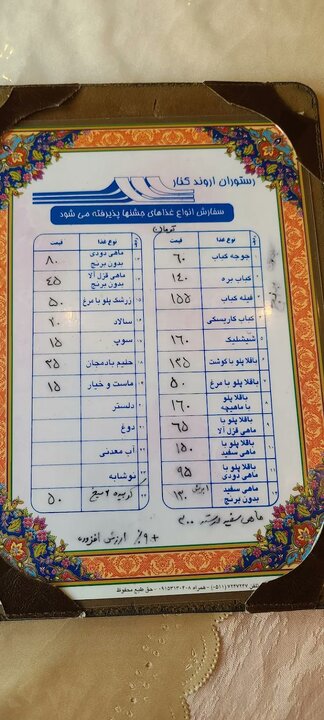 رستوران اروند کنار
سفارش انواع غذاهای جشنها پذیرفته می شود
تومان
نوع غذا قیمت
۱ جوجه کباب ۶۰
۲ کباب بره ۱۴۰
۳ فیله کباب ۱۵۵
۴ کباب کاریسکی
۵ شیشلیک ۱۶۰
۶ باقلا پلو با گوشت ۱۳۵
۷ باقلا پلو با مرغ ۵۰
۸ باقلا پلو با ماهیچه ۱۶۰
۹ باقلا پلو با ماهی قزل آلا ۶۵
۱۰ باقلا پلو با ماهی سفید ۱۵۰
۱۱ باقلا پلو با ماهی دودی ۹۵
۱۲ ماهی سفید بدون برنج ۱۳۰
نوع غذا قیمت
۱۳ ماهی دودی بدون برنج ۸۰
۱۴ ماهی قزل آلا بدون برنج ۴۵
۱۵ زرشک پلو با مرغ ۵۰
۱۶ سالاد ۲۰
۱۷ سوپ ۱۵
۱۸ حلیم بادمجان ۲۵
۱۹ ماست و خیار ۱۵
۲۰ دلستر
۲۱ دوغ
آب معدنی
۲۲ نوشابه
۲۳ کوبیده ۲ سیخ ۵۰
ماهی سفید درسته ۳۰۰
+ ۹٪ ارزش افزوده
تلفن ۷۲۴۷۲۴۷ (۰۵۱۱) - همراه ۰۹۱۵۳۱۳۰۴۰۸ - حق طبع محفوظ